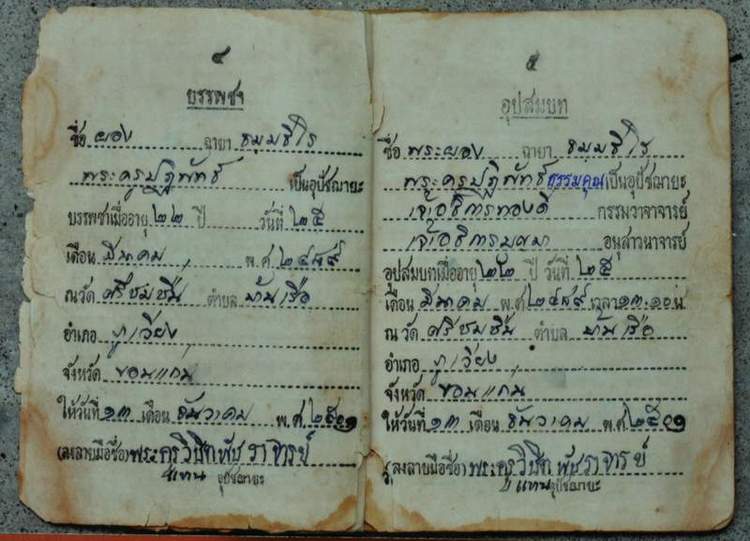 ๔
บรรพชา
ชื่อ ผอง ฉายา ธมฺมธีโร
พระครูปฏิพัทธ์ เป็นอุปัชฌายะ
บรรพชาเมื่ออายุ ๒๒ ปี วันที่ ๒๕
เดือน มีนาคม พ.ศ. ๒๔๘๙
ณวัด ศรีชมชื่น ตำบล บ้านเรือ
อำเภอ ภูเวียง
จังหวัด ขอนแก่น
ให้วันที่ ๑๓ เดือน ธันวาคม พ.ศ.
(ลงลายมือชื่อ) พระครูวิจิตพัชราจารย์
แทน อุปัชฌายะ
๕
อุปสมบท
ชื่อ พระผอง ฉายา ธมฺมธีโร
พระครูปฏิพัทธ์ธรรมคุณ เป็นอุปัชฌายะ
เจ้าอธิการทองดี กรรมวาจาจารย์
เจ้าอธิการ อนุสาวนาจารย์
อุปสมบทเมื่ออายุ ๒๒ ปี วันที่ ๒๕
เดือน มีนาคม พ.ศ. ๒๔๘๙ เวลา ๑๓.๑๐ น.
ณ วัด ศรีชมชื่น ตำบล บ้านเรือ
อำเภอ ภูเวียง
จังหวัด ขอนแก่น
ให้วันที่ ๑๓ เดือน ธันวาคม พ.ศ.
(ลงลายมือชื่อ) พระครูวิจิตพัชราจารย์
แทน อุปัชฌายะ